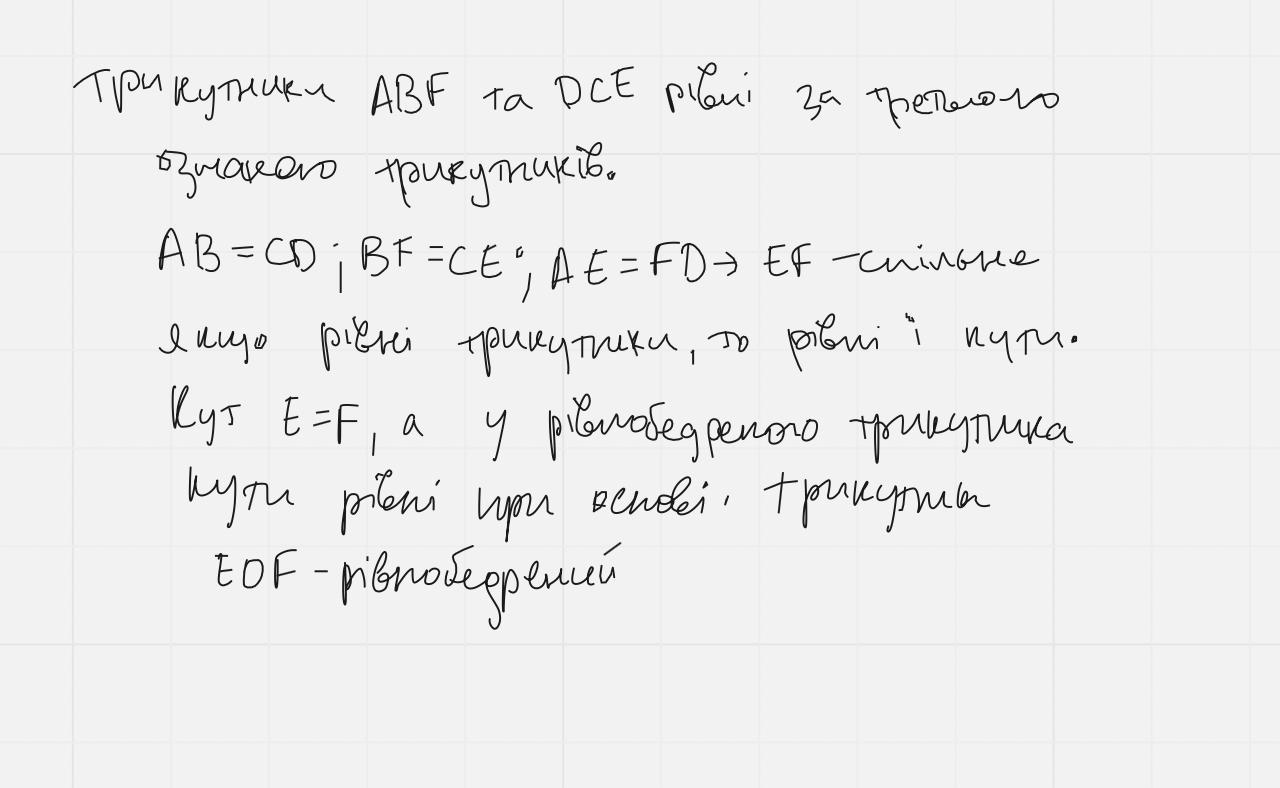 Трикутники ABF та DCE рівні за третьою
ознакою трикутників.
AB = CD ; BF = CE ; AE = FD → EF - спільне
якщо рівні трикутники, то рівні і кути.
Кут E = F, а у рівнобедреного трикутника
кути рівні при основі. трикутник
EOF - рівнобедрений